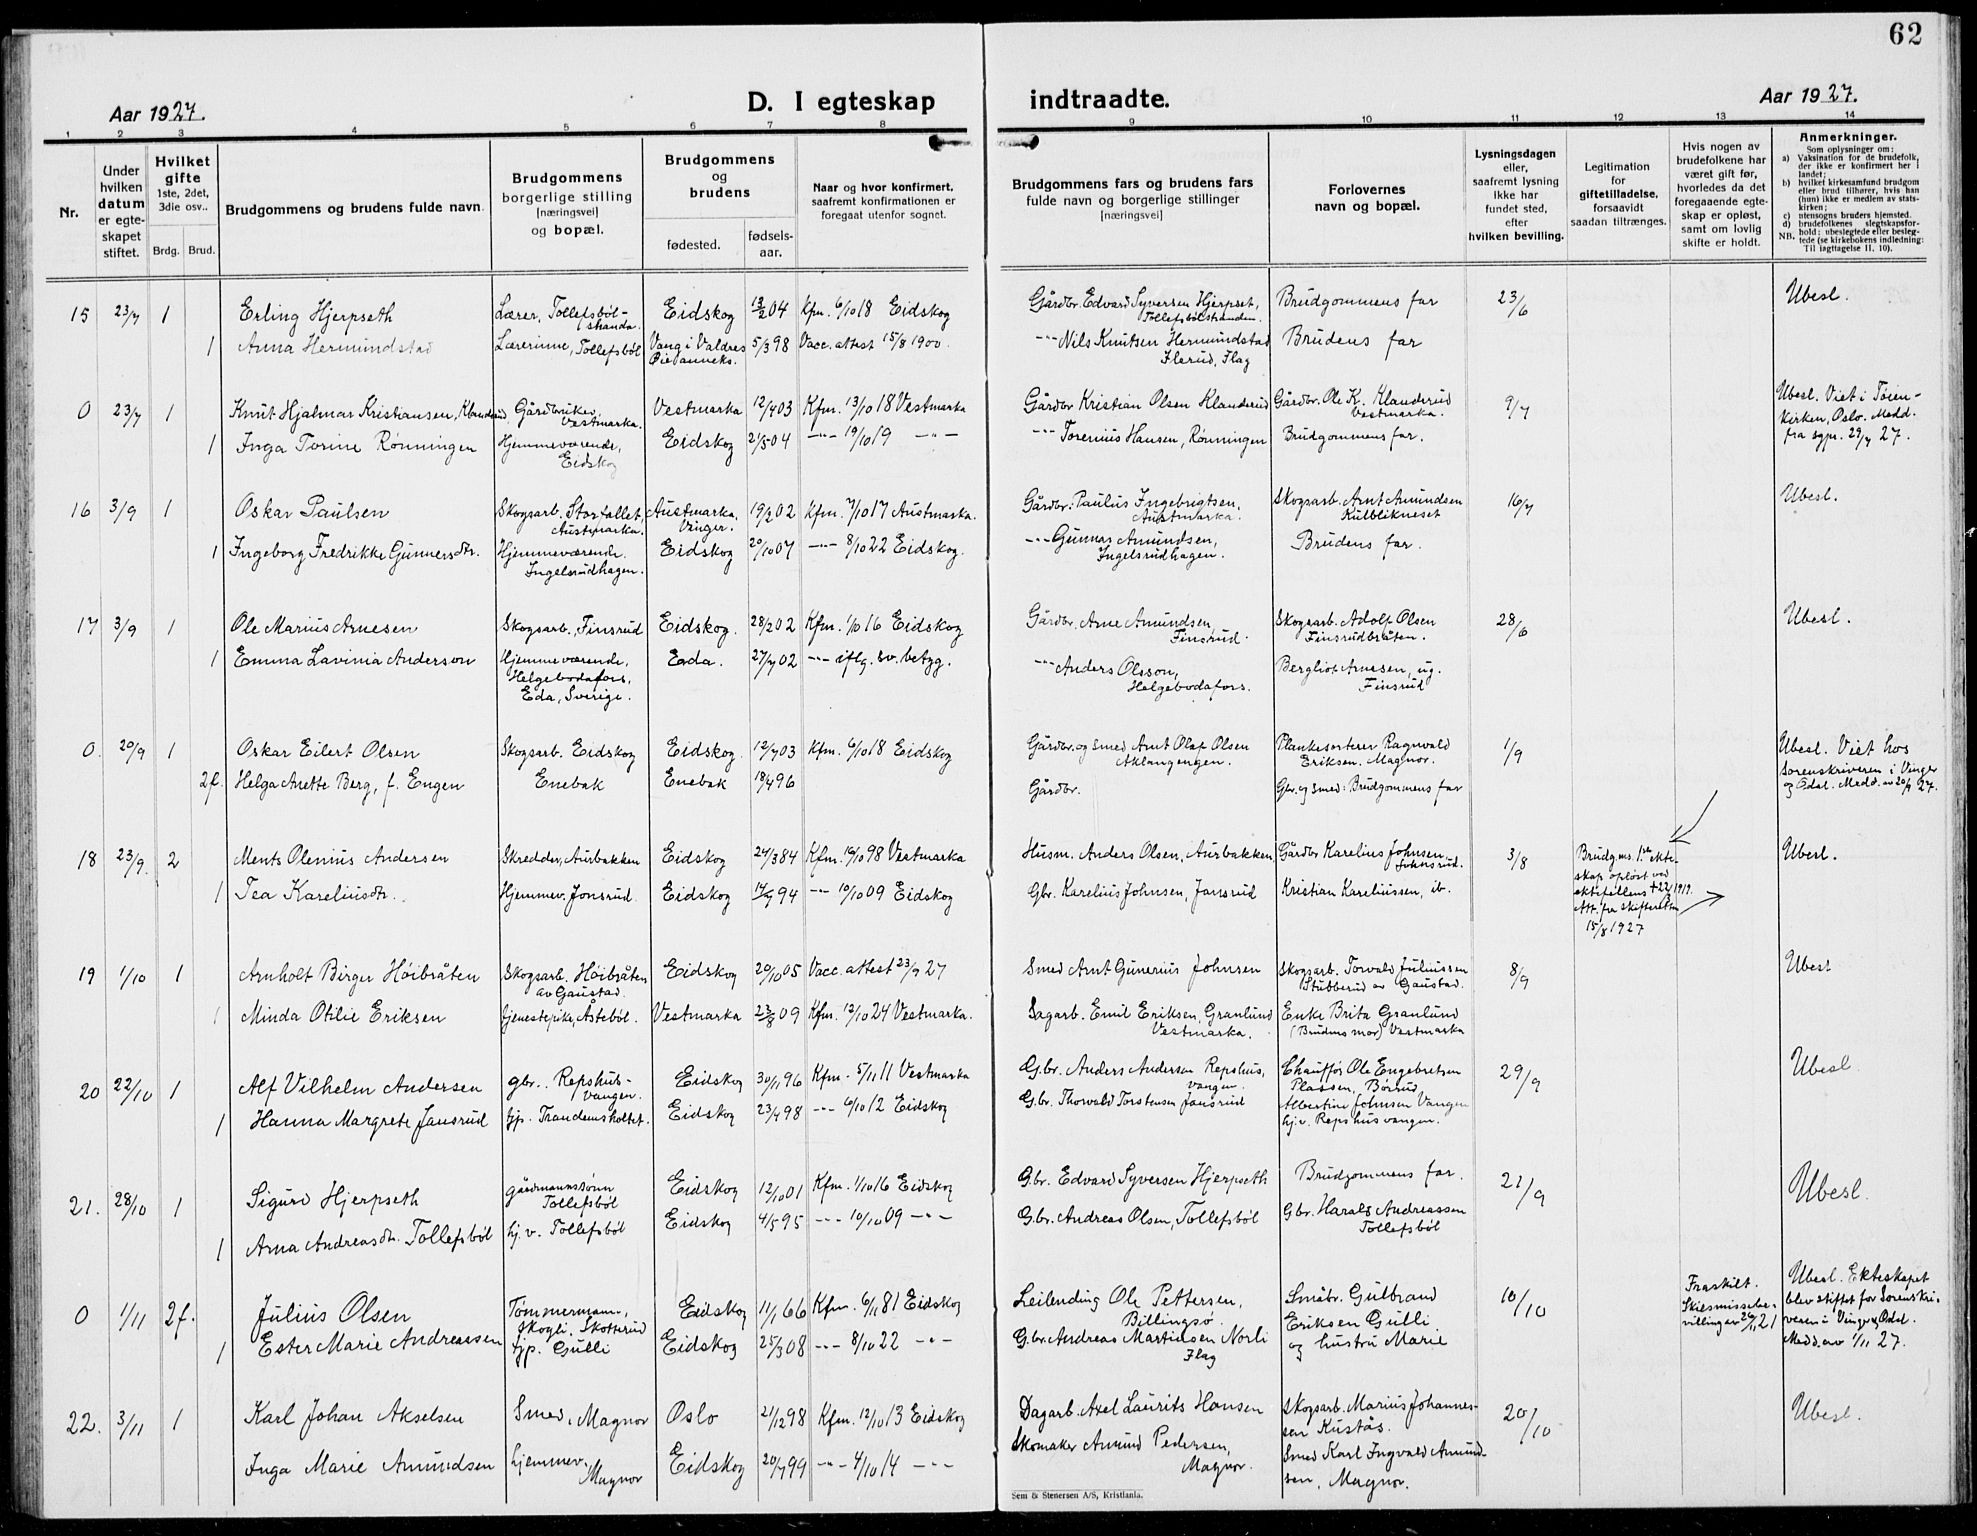 62
Aar 1927.
D. I egteskap
indtraadte.
Aar 1927.
1 2 3 4 5 6 7 8
9 10 11 12 13 14
Nr.
Under hvilken datum er egteskapet stiftet.
Hvilket gifte 1ste, 2det, 3die osv..
Brdg. Brud.
Brudgommens og brudens fulde navn.
Brudgommens borgerlige stilling [næringsvei] og bopæl.
Brudgommens og brudens
fødested.
fødselsaar.
Naar og hvor konfirmert, saafremt konfirmationen er foregaat utenfor sognet.
Brudgommens fars og brudens fars fulde navn og borgerlige stillinger [næringsvei]
Forlovernes navn og bopæl.
Lysningsdagen eller, saafremt lysning ikke har fundet sted, efter hvilken bevilling.
Legitimation for giftetilladelse, forsaavidt saadan tiltrænges.
Hvis nogen av brudefolkene har været gift før, hvorledes da det foregaaende egteskap er opløst, samt om lovlig skifte er holdt.
Anmerkninger.
Som oplysninger om:
a) Vaksination for de brudefolk, der ikke er konfirmert her i landet;
b) hvilket kirkesamfund brudgom eller brud tilhører, hvis han (hun) ikke er medlem av statskirken;
c) utensogns bruders hjemsted.
d) brudefolkenes slegtskapsforhold: ubeslegtede eller beslegtede (se kirkebokens indledning: NB. Til iagttagelse II, 10).
15 23/7 1 Erling Hjerpseth Lærer, Tollefsbølstranda. Eidskog 13/2 04 Kfm. 6/10 18 Eidskog Gårdbr. Edvard Syversen Hjerpset, Tollefsbølstranden. Brudgommens far 23/6 Ubesl.
1 Anna Hermundstad Lærerinne, Tollefsbøl Vang i Valdres Øie anneks. 5/3 98 Vacc. attest 15/8 1900. -"- Nils Knutsen Hermundstad Flerud, Flag Brudens far
0 23/7 1 Knut Hjalmar Kristiansen, Klanderud Gårdbruker, Vestmarka. Vestmarka 12/4 03 Kfm. 13/10 18 Vestmarka Gårdbr Kristian Olsen Klanderud Gårdbr. Ole K. Klanderud Vestmarka. 9/7 Ubesl. Viet i Tøienkirken, Oslo. Medd. fra sgpr. 29/7 27.
1 Inga Torine Rønningen Hjemmeværende, Eidskog Eidskog 21/5 04 -"- 19/10 19 -"- -"- Torenius Hansen, Rønningen Brudgommens far.
16 3/9 1 Oskar Paulsen Skogsarb. Storfallet, Austmarka. Austmarka, Vinger. 19/2 02 Kfm. 7/10 17 Austmarka. Gårdbr. Paulus Ingebrigtsen, Austmarka. Skogsarb. Arnt Amundsen Kulblikneset 16/7 Ubesl.
1 Ingeborg Fredrikke Gunnersdtr. Hjemmeværende. Ingelsrudhagen. Eidskog 20/10 07 -"- 8/10 22 Eidskog. -"- Gunnar Amundsen, Ingelsrudhagen. Brudens far.
17 3/9 1 Ole Marius Arnesen Skogsarb., Finsrud Eidskog. 28/2 02 Kfm. 1/10 16 Eidskog Gårdbr. Arne Amundsen, Finsrud. Skogsarb. Adolf Olsen Finsrudbråten. 28/6 Ubesl.
1 Emma Lavinia Anderson Hjemmeværende, Helgebodafors, Eda, Sverige. Eda. 27/7 02 -"- iflg. sv. betyg. -"- Anders Olsson, Helgebodafors. Bergliot Arnesen, ug. Finsrud
0. 20/9 1 Oskar Eilert Olsen Skogsarb. Eidskog Eidskog. 12/7 03 Kfm. 6/10 18 Eidskog Gårdbr. og smed Arnt Olaf Olsen Aklangengen. Plankesorterer Ragnvald Eriksen. Magnor. 1/9 Ubesl. Viet hos sorenskriveren i Vinger og Odal. Medd. av 20/9 27.
2f. Helga Anette Berg, f. Engen Enebak Enebak 18/4 96 Gårdbr. Gbr. og smed: Brudgommens far
18 23/9. 2 Ments Olenius Andersen Skredder, Aurbakken Eidskog 24/3 84 Kfm. 16/10 98 Vestmarka Husm. Anders Olsen, Aurbakken Gårdbr Karelius Johnsen Johnsrud. 3/8 Brudg.ms. 1ste ekteskap opløst ved ektefellens + 22/1 1919. Att. fra skifteretten 15/8 1927 Ubesl.
1 Tea Kareliusdtr. Hjemmev. Jonsrud. Eidskog 94 -"- 10/10 09 Eidskog Gbr. Karelius Johnsen, Jansrud Kristian Kareliussen, ib.
19 1/10 1 Arnholt Birger Høibråten Skogsarb. Høibråten av Gaustad. Eidskog 20/10 05 Vacc. attest 23/9 27 Smed Arnt Gunerius Johnsen Skogsarb. Torvald Juliussen Stubberud av Gaustad. 8/9 Ubesl
1 Minda Otilie Eriksen Tjenestepike, Åstebøl. Vestmarka 23/8 09 Kfm. 12/10 24 Vestmarka. Sagarb. Emil Eriksen, Granlund Vestmarka. Enke Brita Granlund (Brudens mor) Vestmarka
20 22/10 1 Alf Vilhelm Andersen gbr. Repshusvangen. Eidskog 30/11 96 Kfm. 5/11 11 Vestmarka G.br. Anders Andersen Repshusvangen. Chauffør Ole Engebretsen Plassen, Børud 29/9 Ubesl.
1 Hanna Margrete Jansrud tjp. Trandemsholtet. Eidskog 23/4 98 -"- 6/10 12 Eidskog G.br. Thorvald Torstensen Jansrud Albertine Johnsen Vangen hj.v. Repshusvangen.
21. 28/10 1 Sigurd Hjerpseth gårdmannssønn Tollefsbøl Eidskog 12/10 01 Kfm. 1/10 16 Eidskog G.br. Edvard Syversen Hjerpseth Brudgommens far. 21/9 Ubesl.
1 Arna Andreasdtr. Tollefsbøl hj.v. Tollefsbøl Eidskog 4/5 95 -"- 10/10 09 -"- G.br. Andreas Olsen, Tollefsbøl Gbr. Harald Andreassen Tollefsbøl
0 1/11 2f. Julius Olsen Tømmermann, Skogli. Skotterud Eidskog 11/1 66 Kfm. 6/11 81 Eidskog Leilending Ole Pettersen, Billingsø. Småbr. Gulbrand Eriksen Gulli og hustru Marie 10/10 Fraskilt. Skilsmissebevilling av 20/11 21 Ubesl. Ekteskapet blev stiftet for Sorenskriveren i Vinger & Odal. Medd. av 1/11 27.
1 Ester Marie Andreassen tjp. Gulli Eidskog 25/3 08 -"- 8/10 22 -"- G.br. Andreas Martinsen Norli Flag
22. 3/11 1 Karl Johan Akselsen Smed, Magnor Oslo 21/12 98 Kfm. 12/10 13 Eidskog Dagarb. Axel Laurits Hansen Skogsarb. Marius Johannessen Kustås. 20/10 Ubesl.
Inga Marie Amundsen hjemmev. Magnor Eidskog 20/7 99 -"- 4/10 14 -"- Skomaker Amund Pedersen, Magnor. Smed Karl Ingvald Amundsen, Magnor.
Sem & Stenersen A/S, Kristiania.